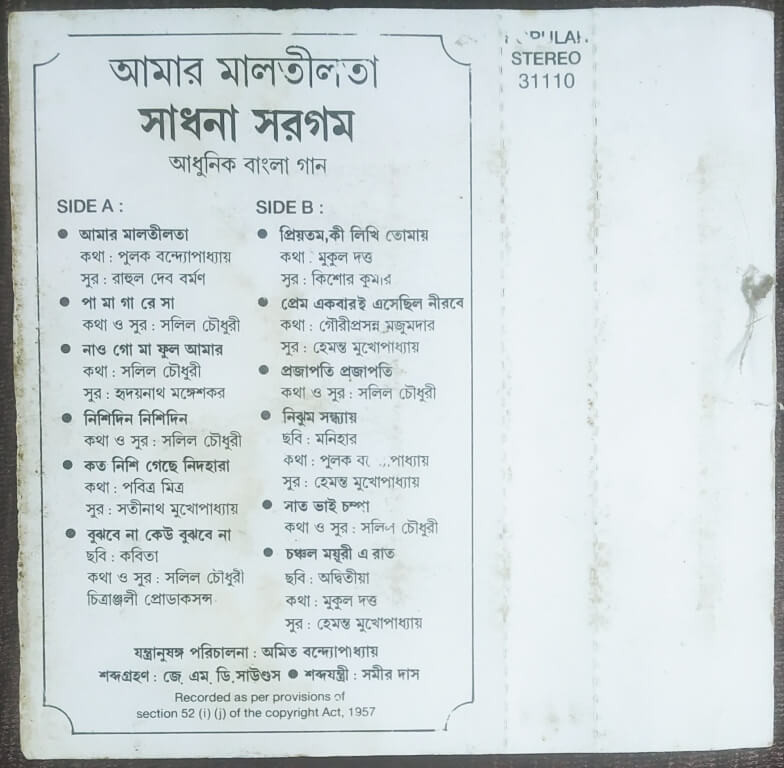 আমার মালতীলতা
সাধনা সরগম
আধুনিক বাংলা গান
SIDE A :
● আমার মালতীলতা
কথা : পুলক বন্দ্যোপাধ্যায়
সুর : রাহুল দেব বর্মণ
● পা মা গা রে সা
কথা ও সুর : সলিল চৌধুরী
● নাও গো মা ফুল আমার
কথা : সলিল চৌধুরী
সুর : হৃদয়নাথ মঙ্গেশকর
● নিশিদিন নিশিদিন
কথা ও সুর : সলিল চৌধুরী
● কত নিশি গেছে নিদহারা
কথা : পবিত্র মিত্র
সুর : সতীনাথ মুখোপাধ্যায়
● বুঝবে না কেউ বুঝবে না
ছবি : কবিতা
কথা ও সুর : সলিল চৌধুরী
চিত্রাঞ্জলী প্রোডাকসন্স
SIDE B :
● প্রিয়তম,কী লিখি তোমায়
কথা : মুকুল দত্ত
সুর : কিশোর কুমার
● প্রেম একবারই এসেছিল নীরবে
কথা : গৌরীপ্রসন্ন মজুমদার
সুর : হেমন্ত মুখোপাধ্যায়
● প্রজাপতি প্রজাপতি
কথা ও সুর : সলিল চৌধুরী
● নিঝুম সন্ধ্যায়
ছবি : মনিহার
কথা : পুলক
সুর : হেমন্ত মুখোপাধ্যায়
● সাত ভাই চম্পা
কথা ও সুর : সলিল চৌধুরী
● চঞ্চল ময়ূরী এ রাত
ছবি : অদ্বিতীয়া
কথা : মুকুল দত্ত
সুর : হেমন্ত মুখোপাধ্যায়
যন্ত্রানুষঙ্গ পরিচালনা : অমিত বন্দ্যোপাধ্যায়
শব্দগ্রহণ : জে. এম. ডি.সাউণ্ডস ● শব্দযন্ত্রী : সমীর দাস
Recorded as per provisions of
section 52 (i) (j) of the copyright Act, 1957
STEREO
31110